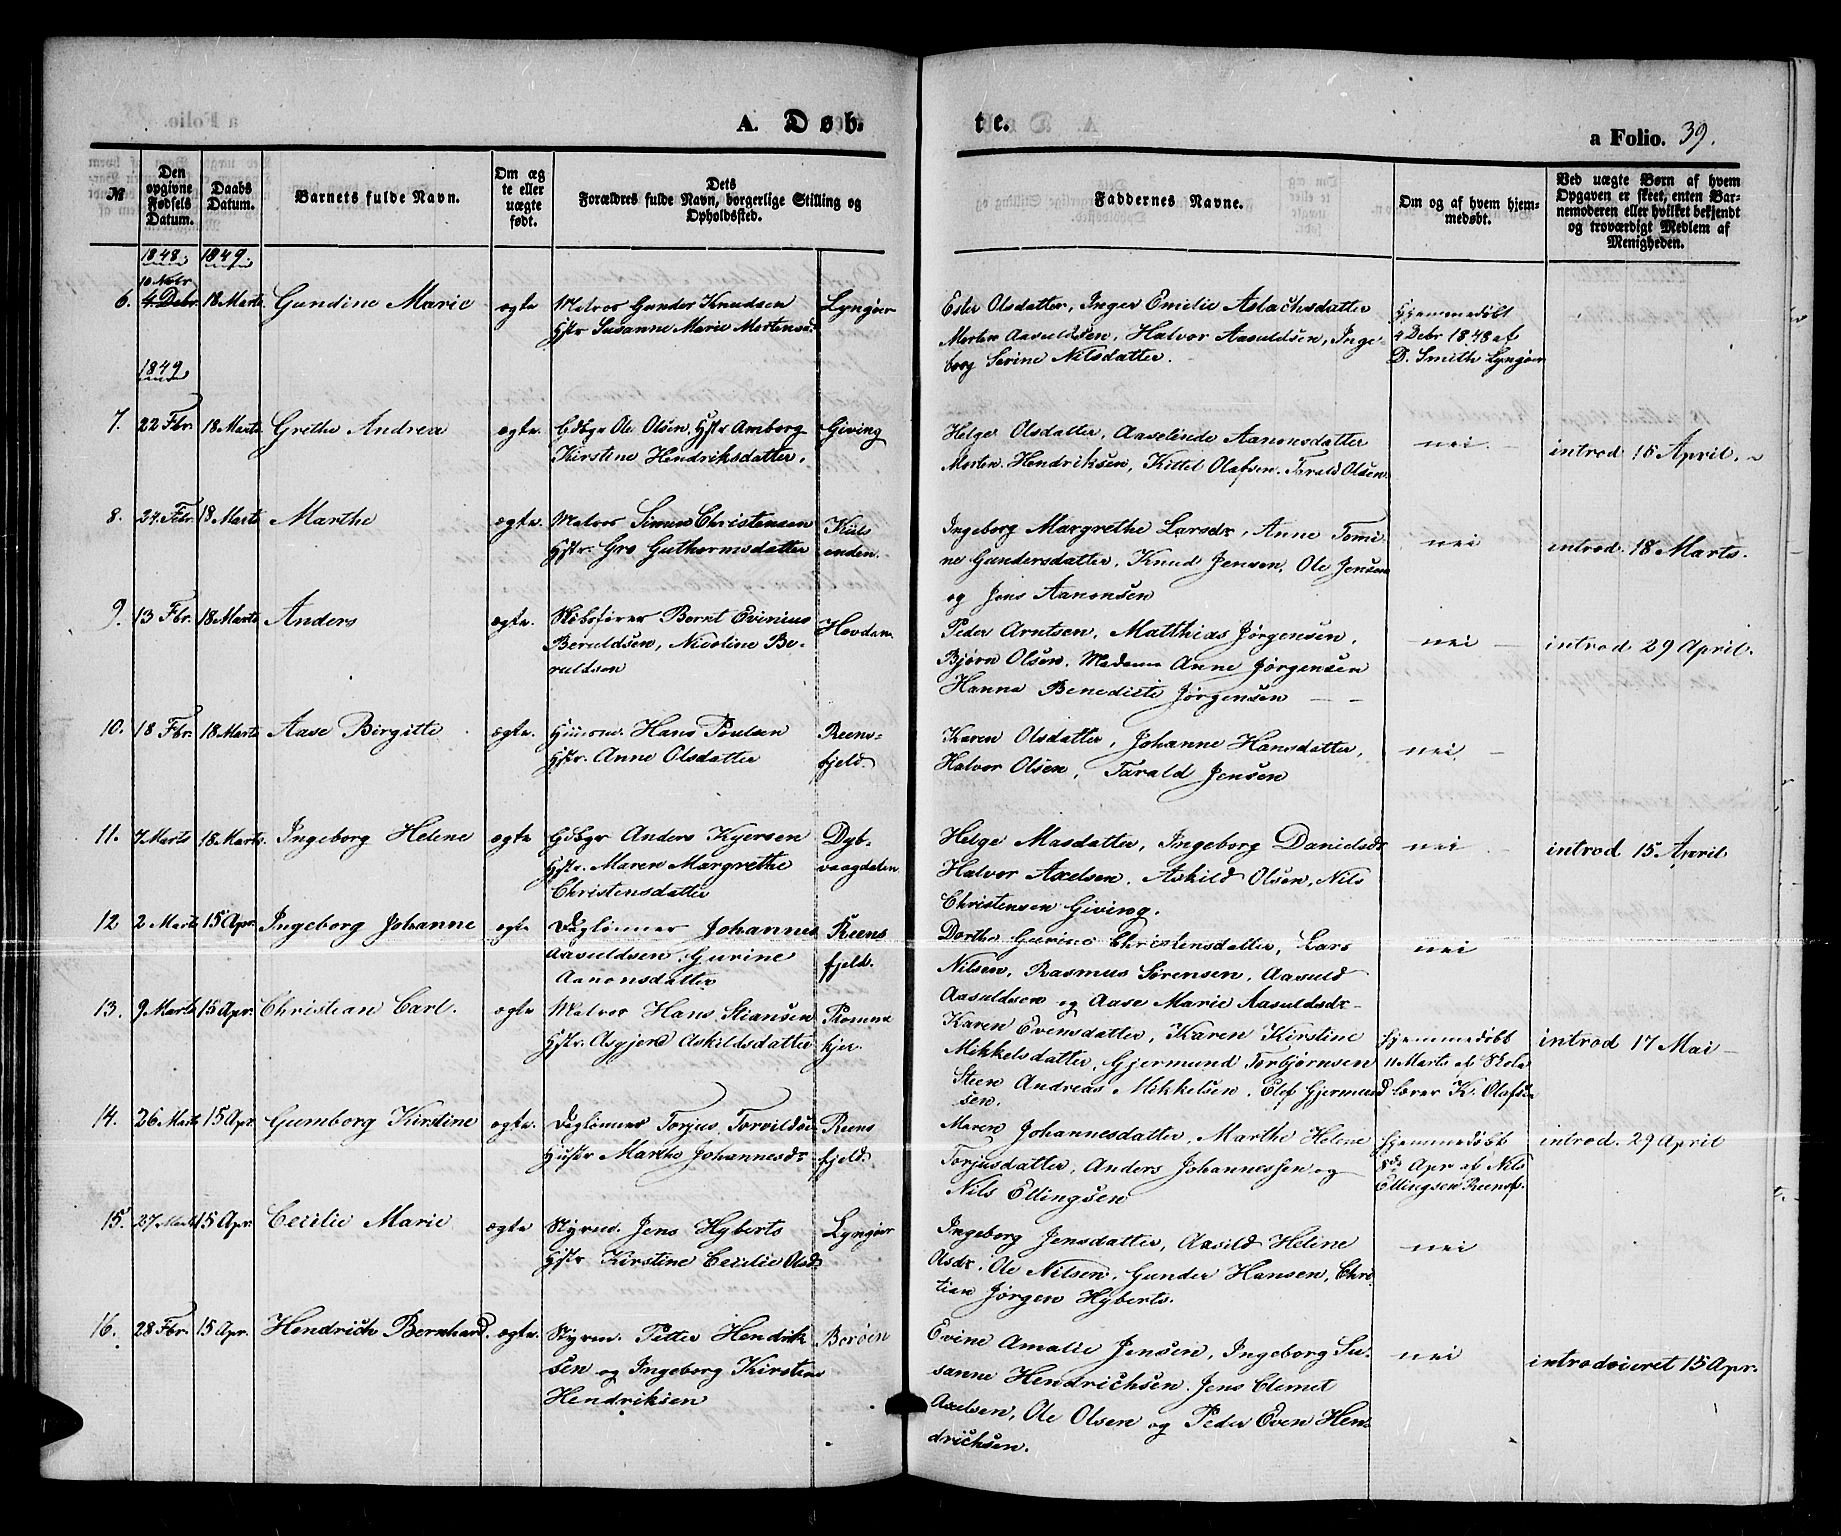 A. Døb. te. a Folio. 39.
№
Den opgivne Fødsels Datum.
Daabs Datum.
Barnets fulde Navn.
Om ægte eller uægte født.
Dets Forældres fulde Navn, borgerlige Stilling og Opholdssted.
Faddernes Navne.
Om og af hvem hjemmedøbt.
Ved uægte Børn af hvem Opgaven er skeet, enten Barnemoderen eller hvilket bekjendt og troværdigt Medlem af Menigheden.
1848. 1849.
10 Nvbr
6. 4 Debr 18 Marts Gundine Marie ægte Matros Gunder Knudsen Lyngøer
Hstr Susanne Marie Mortensd.
Ester Olsdatter, Inger Emilie Aslachsdatter
Morten Aasuldsen, Halvor Aasuldsen, Inge-
borg Serine Nilsdatter.
Hjemmedøbt
4 Debr 1848 af
D. Smith Lyngøer
1849
7. 22 Fbr. 18 Marts Grethe Andrea ægte. Gdbgr Ole Olsen, Hstr Amborg Giving
Kirstine Hendriksdatter.
Helge Olsdatter, Aaselinde Aanonsdatter
Morten Hendriksen, Kittel Olafsen. Tarald Olsen
nei introd 15 April.
8. 24 Febr. 18 Marts Marthe ægte. Matros Simen Christensen Kiils
Hstr. Gro Guthormsdatter enden.
Ingeborg Margrethe Larsdr, Anne Tomi-
ne Gundersdatter, Knud Jensen, Ole Jensen
og Jens Aanonsen
nei introd. 18 Marts.
9. 13 Fbr. 18 Marts Anders ægte. Skibsfører Bernt Evinius Hovdan
Beruldsen, Nicoline Be-
ruldsen
Peder Arntsen, Matthias Jørgensen,
Bjørn Olsen, Madame Anne Jørgensen
Hanna Benedicte Jørgensen
nei introd 29 April.
10. 18 Fbr. 18 Marts Aase Birgitte ægte. Huusm. Hans Poulsen Reens-
Hstr. Anne Olsdatter fjeld.
Karen Olsdatter, Johanne Hansdatter,
Halvor Olsen, Tarald Jensen
nei.
11. 7 Marts 18 Marts. Ingeborg Helene ægte Gdbgr Anders Kjersen Dyb-
Hstr. Maren Margrethe vaagdalen
Christensdatter
Helge Masdatter, Ingeborg Danielsdr
Halvor Axelsen, Askild Olsen, Nils
Christensen Giving.
nei introd 15 April
12 2 Marts 15 Apr. Ingeborg Johanne ægte Daglønner Johannes Reens
Aasuldsen, Gurine fjeld.
Aanonsdatter
Dorthe Gurine Christensdatter, Lars
Nilsen, Rasmus Sørensen, Aasuld
Aasuldsen og Aase Marie Aasuldsdr
nei
13. 9 Marts 15 Apr. Christian Carl. ægte Matros Hans Stiansen Plomme
Hstr. Asgjerd Askildsdatter kjer.
Karen Evensdatter, Karen Kirstine
Mikkelsdatter, Gjermund Torbjørnsen
Steen Andreas Mikkelsen. Elef Gjermund
sen.
Hjemmedøbt
11 Marts af Skole
lærer K. Olafsen
introd 17 Mai
14. 26 Marts 15 Apr. Gumborg Kirstine ægte. Daglønner Torjus Torvildsen Reens
Hustr Marthe Johannesdr fjeld.
Maren Johannesdatter, Marthe Helene
Torjusdatter, Anders Johannessen og
Nils Ellingsen
Hjemmedøbt
8de Apr af Nils
Ellingsen Reensf.
introd. 29 April
15. 27 Marts 15 Apr. Cecilie Marie ægte Styrm. Jens Hyberts Lyngøer
Hstr Kirstine Cecilie Olsd
Ingeborg Jensdatter, Aasild Helene
Olsdr. Ole Nilsen, Gunder Hansen, Chri
tian Jørgen Hyberts.
nei
16. 28 Fbr. 15 Apr. Hendrich Bernhard. ægte. Styrm. Petter Hendrik Borøen
sen og Ingeborg Kirstine
Hendriksen
Evine Amalie Jensen, Ingeborg Su-
sanne Hendrichsen. Jens Clemet
Axelsen, Ole Olsen og Peder Even Hen-
drichsen.
nei introduceret 15 Apr.